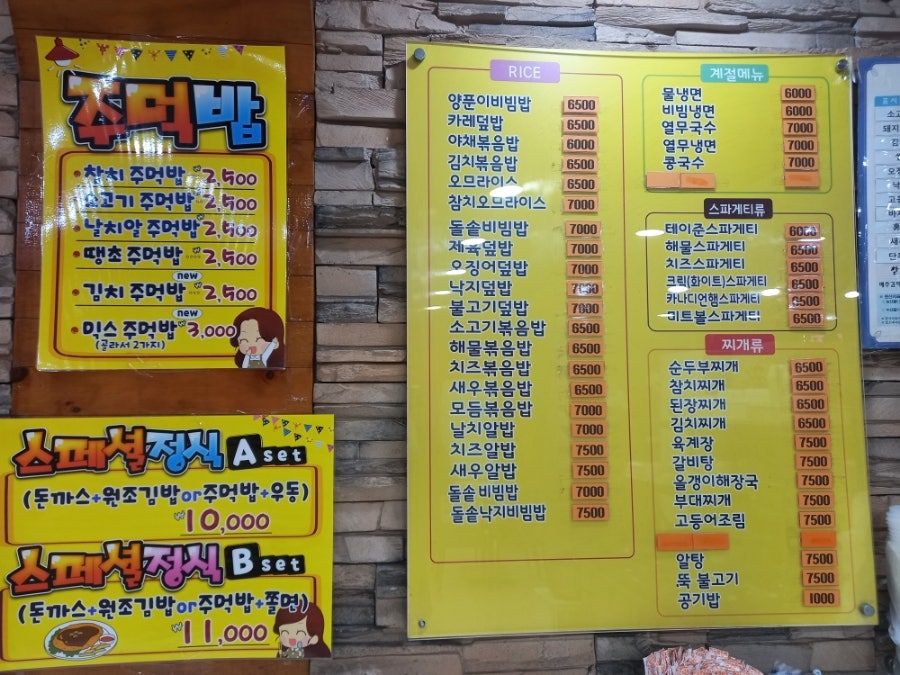 주먹밥
• 참치 주먹밥 ₩2,500
소고기 주먹밥 ₩2,500
• 날치알 주먹밥 ₩2,500
• 땡초 주먹밥 ₩2,500
new
• 김치 주먹밥 ₩2,500
new
• 믹스 주먹밥 ₩3,000
(골라서 2가지)
스페셜정식 A set
(돈까스+원조김밥or주먹밥+우동)
₩10,000
스페셜정식 B set
(돈까스+원조김밥or주먹밥+쫄면)
₩11,000
RICE
양푼이비빔밥 6500
카레덮밥 6500
야채볶음밥 6000
김치볶음밥 6500
오므라이스 6500
참치오므라이스 7000
돌솥비빔밥 7000
제육덮밥 7000
오징어덮밥 7000
낙지덮밥 7000
불고기덮밥 7000
소고기볶음밥 6500
해물볶음밥 6500
치즈볶음밥 6500
새우볶음밥 6500
모듬볶음밥 7000
날치알밥 7000
치즈알밥 7500
새우알밥 7500
돌솥 비빔밥 7000
돌솥낙지비빔밥 7500
계절메뉴
물냉면 6000
비빔냉면 6000
열무국수 7000
열무냉면 7000
콩국수 7000
스파게티류
테이준스파게티 6000
해물스파게티 6500
치즈스파게티 6500
크림(화이트)스파게티 6500
카나디언햄스파게티 6500
미트볼스파게티 6500
찌개류
순두부찌개 6500
참치찌개 6500
된장찌개 6500
김치찌개 6500
육계장 7500
갈비탕 7500
올갱이해장국 7500
부대찌개 7500
고등어조림 7500
알탕 7500
뚝 불고기 7500
공기밥 1000